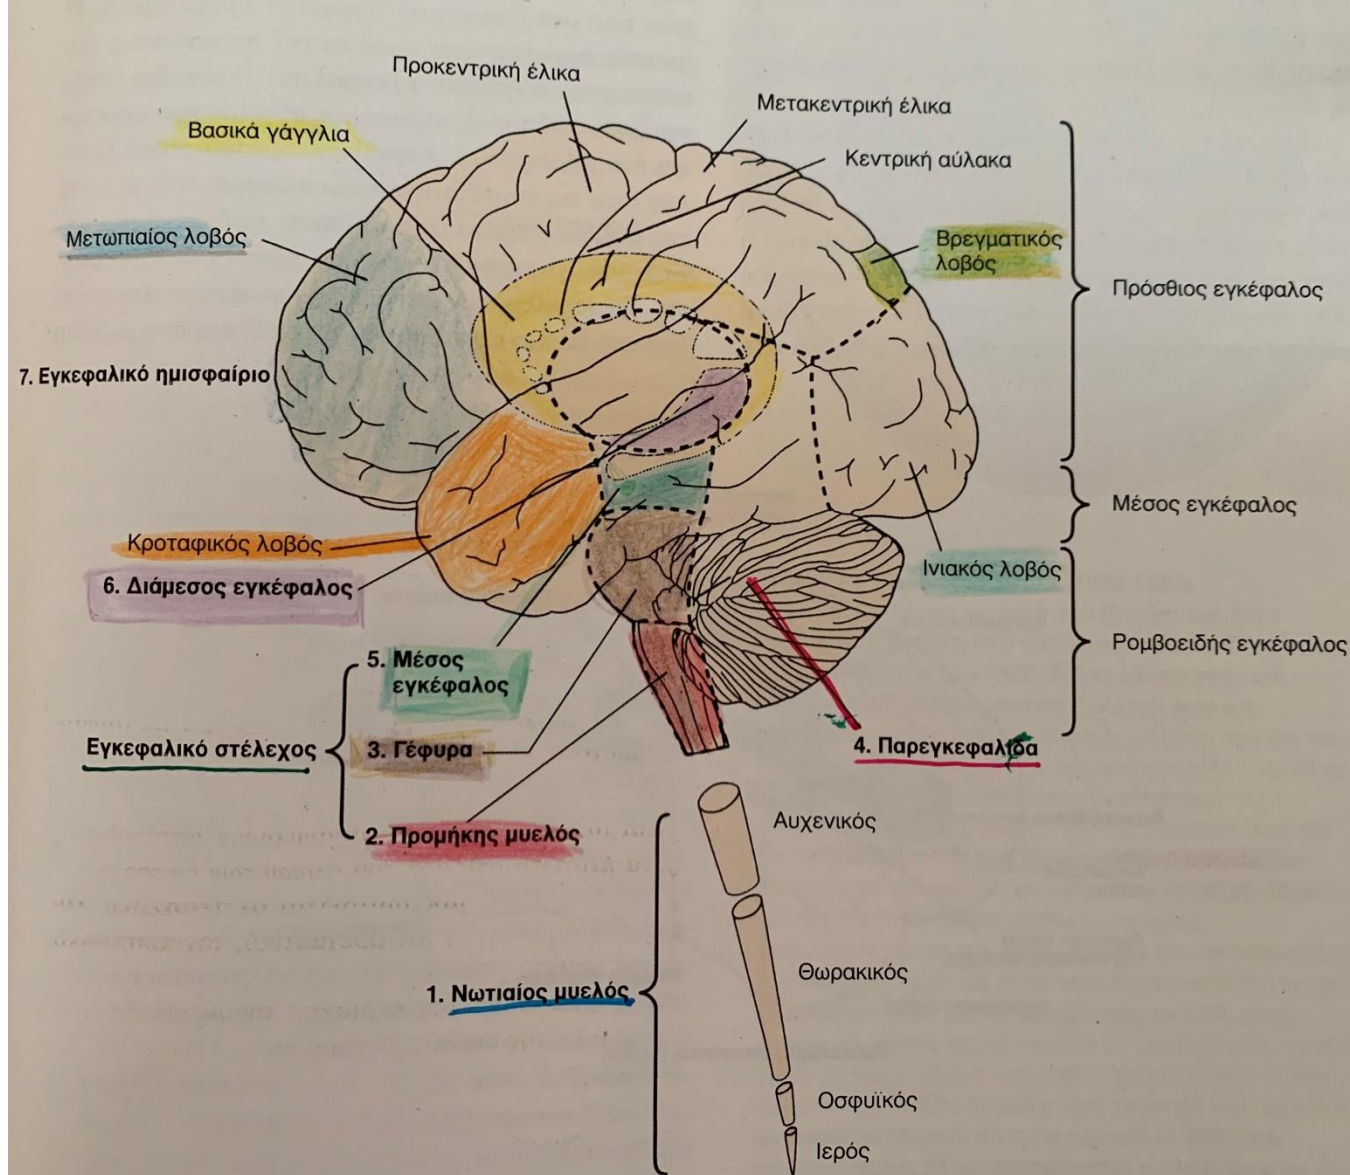 Προκεντρική έλικα
Μετακεντρική έλικα
Βασικά γάγγλια
Κεντρική αύλακα
Μετωπιαίος λοβός
Βρεγματικός
λοβός
Πρόσθιος εγκέφαλος
7. Εγκεφαλικό ημισφαίριο
Μέσος εγκέφαλος
Κροταφικός λοβός
Ινιακός λοβός
6. Διάμεσος εγκέφαλος
Ρομβοειδής εγκέφαλος
5. Μέσος
εγκέφαλος
Εγκεφαλικό στέλεχος
3. Γέφυρα
4. Παρεγκεφαλίδα
2. Προμήκης μυελός
Αυχενικός
Θωρακικός
1. Νωτιαίος μυελός
Οσφυϊκός
Ιερός